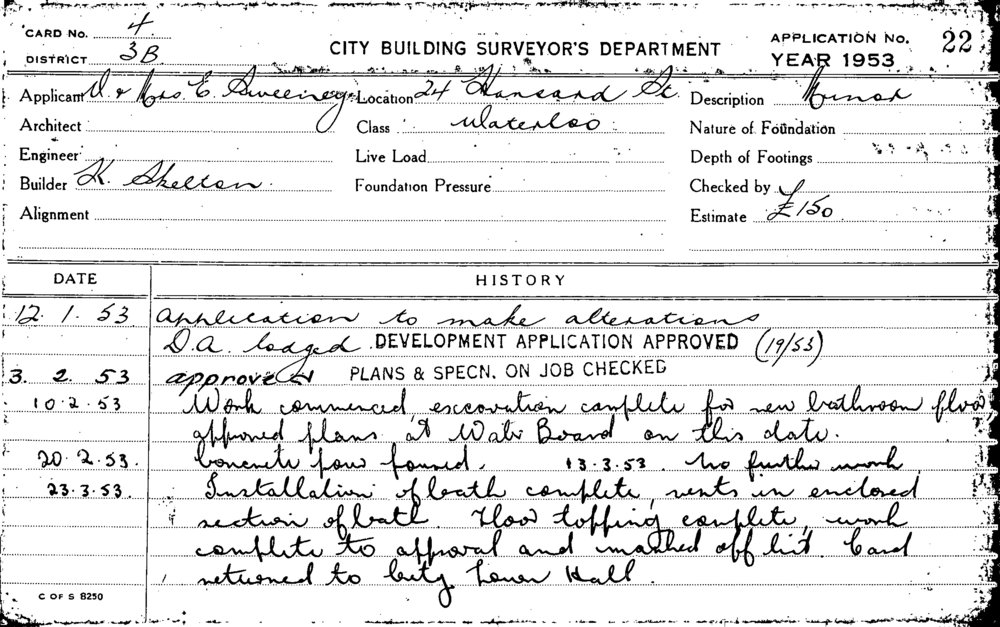 CARD No. 4
DISTRICT 3B
CITY BUILDING SURVEYOR'S DEPARTMENT
APPLICATION No. 22
YEAR 1953
Applicant D. & Mrs. E. Sweeney Location 24 Hansard St. Description Minor
Architect Class Waterloo Nature of Foundation
Engineer Live Load Depth of Footings
Builder K. Skelton. Foundation Pressure Checked by
Alignment Estimate £150
DATE HISTORY
12. 1. 53 Application to make alterations
D.A. lodged. DEVELOPMENT APPLICATION APPROVED (19/53)
3. 2. 53 approved PLANS & SPECN. ON JOB CHECKED
10.2.53 Work commenced, excavation complete for new bathroom floor,
approved plans at Water Board on this date.
20.2.53. Concrete poured. 13.3.53. No further work
23.3.53. Installation of bath complete, vents in enclosed
section of bath. Floor topping complete, work
complete to approval and marked off list. Card
returned to City Town Hall.
C OF S 8250